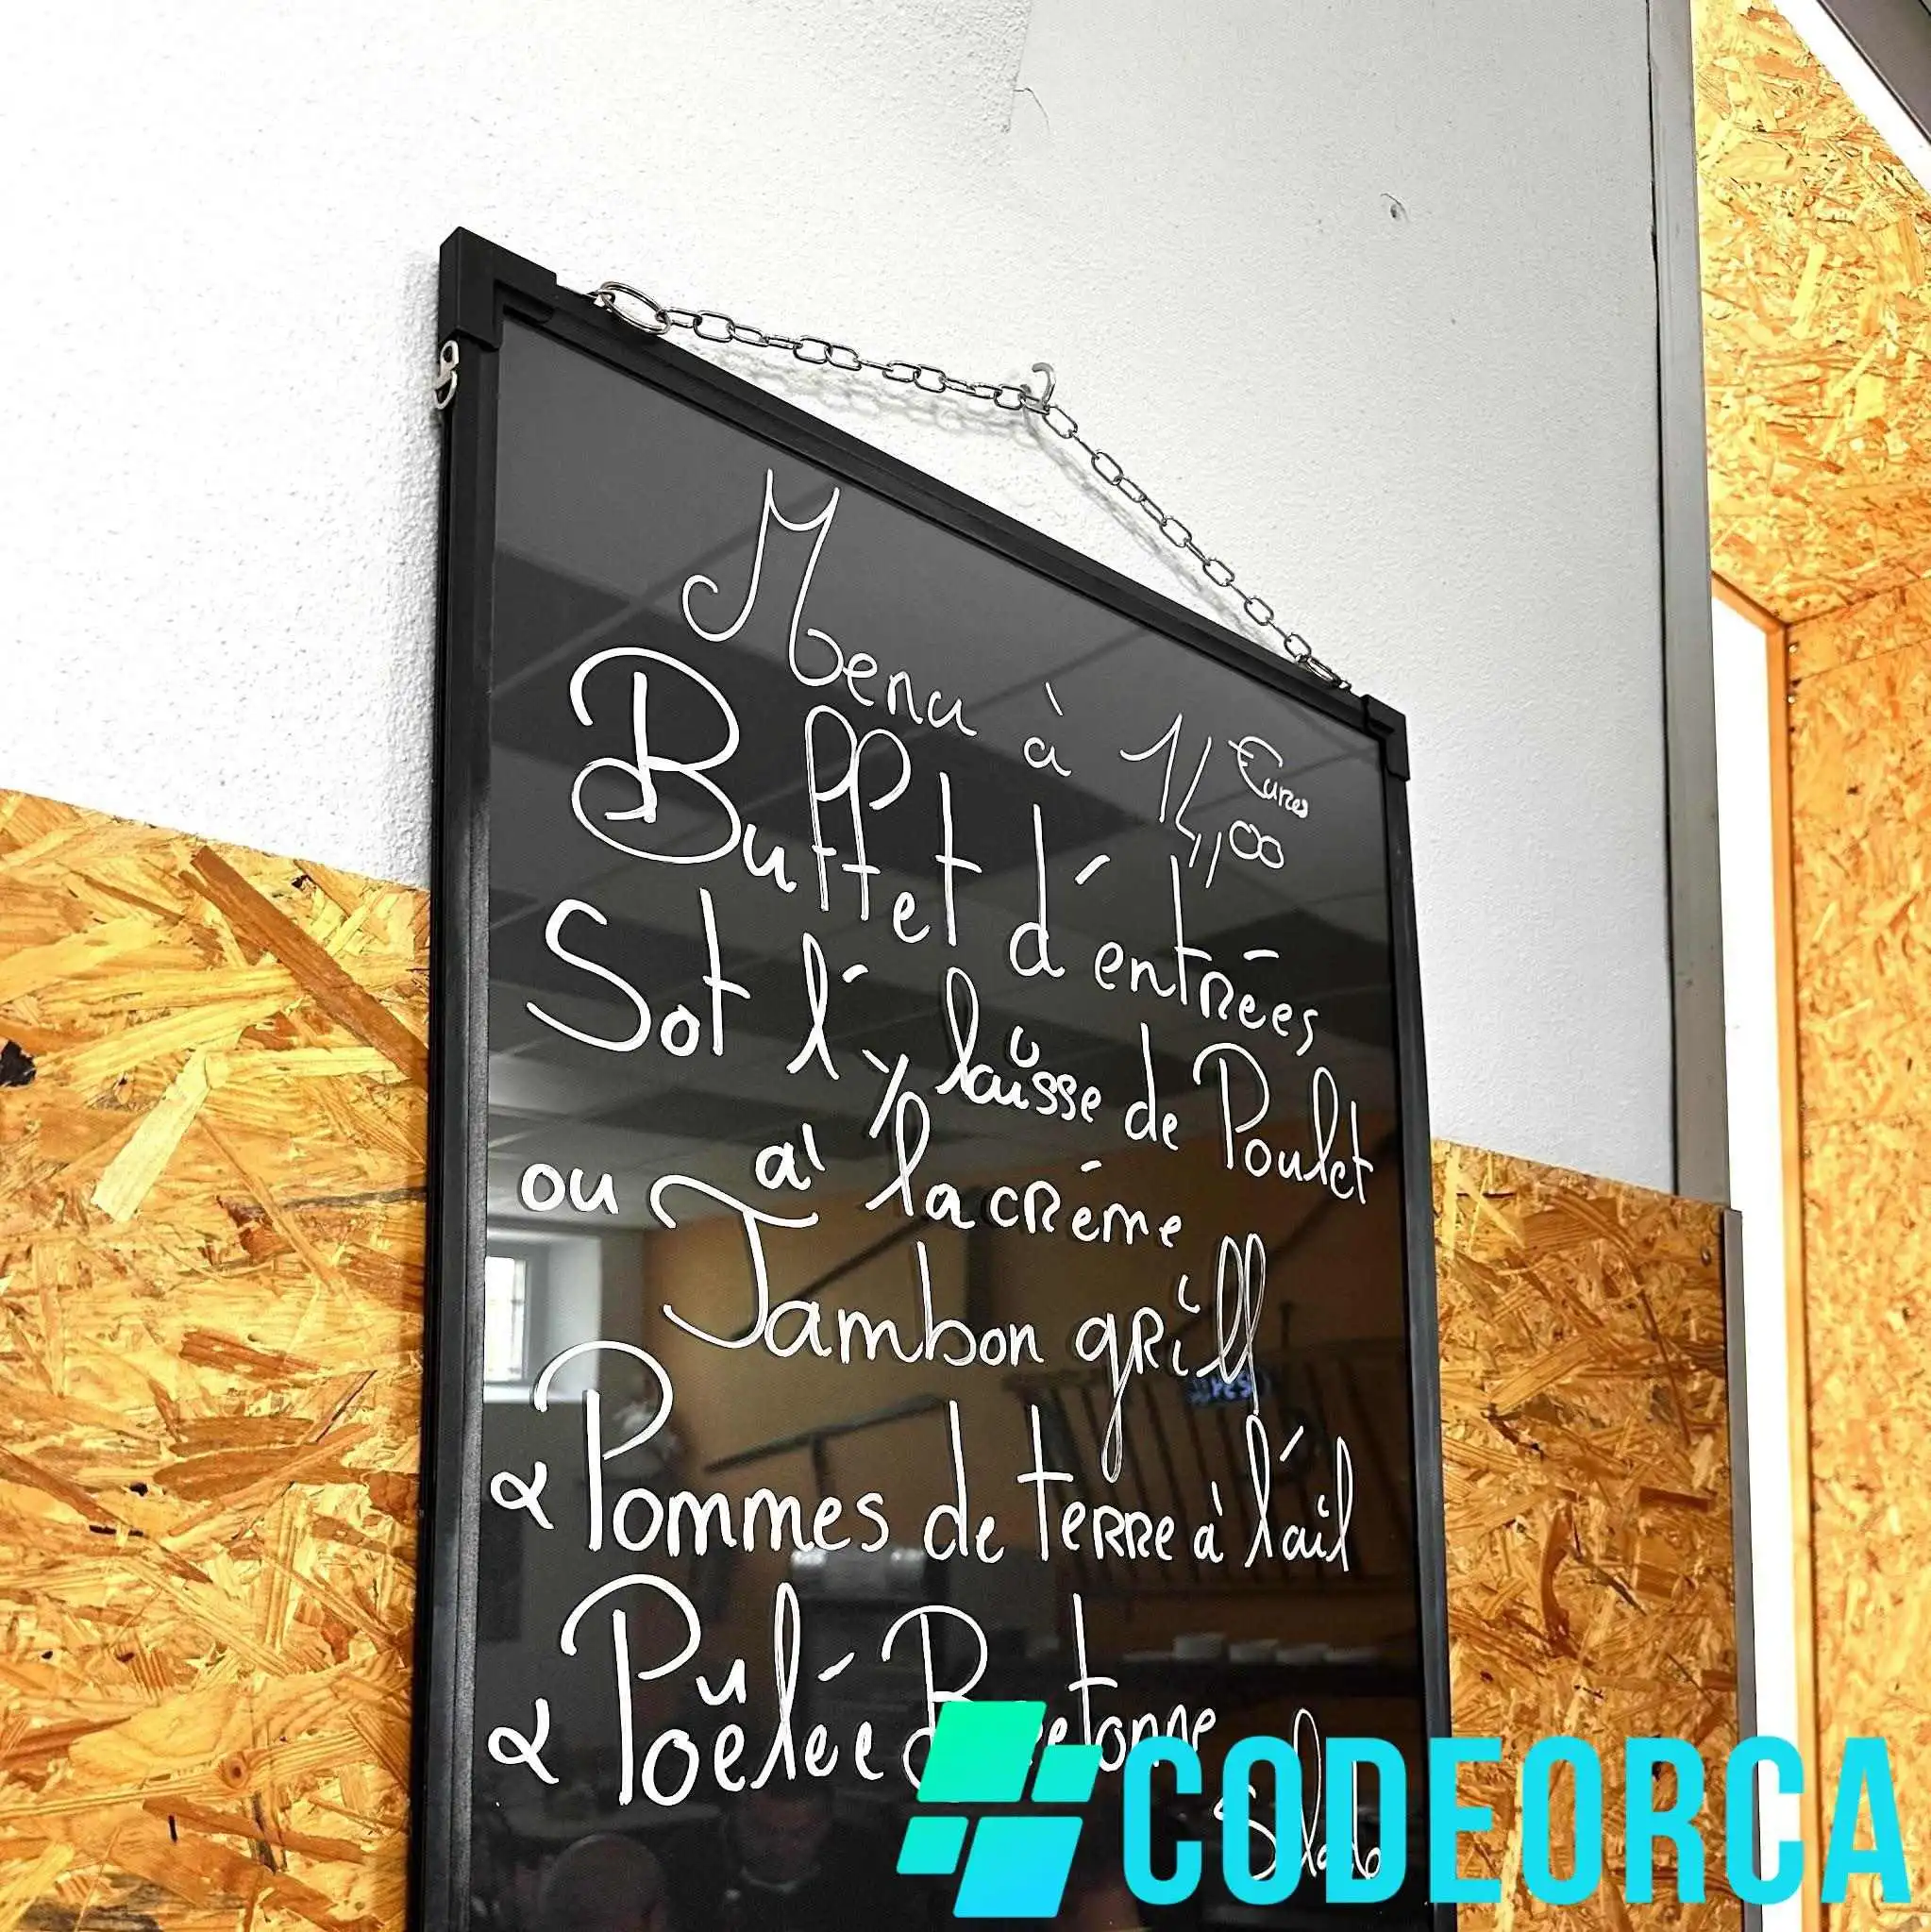 Menu à 14,00 Euros
Buffet d'entrées
Sot l'y laisse de Poulet
à la crème
ou Jambon grill
& Pommes de terre à l'ail
& Poêlée Bretonne
CODEORCA